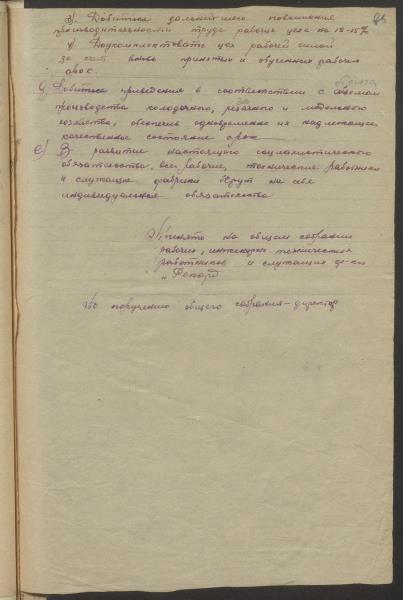 з) Добиться дальнейшего повышения
производительности труда рабочих цеха на 12-15%
и) Доукомплектовать цех рабочей силой
за счет вновь принятых и обученных рабочих
д) Добиться приведения в соответствии с объемом
производства колодочного, и модельного
хозяйства, обеспечив одновременно их надлежащее
качественное состояние
е) В развитие настоящего социалистического
обязательства, все рабочие, технические работники
и служащие фабрики берут на себя
индивидуальные обязательства
Принято на общем собрании
рабочих, инженерно-технических
работников и служащих ф-ки
"Рекорд"
По поручению общего собрания - директор